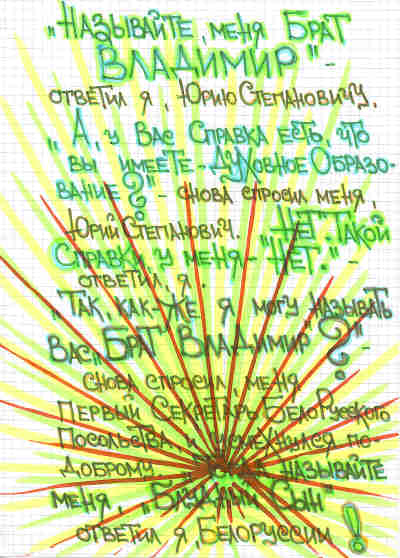 „Называйте, меня Брат
Владимир" -
ответил я, Юрию Степановичу.
„А, у Вас Справка есть, что
вы имеете - Духовное Образо-
вание?" - снова спросил меня,
Юрий Степанович. "Нет. Такой
Справки, у меня - "Нет." -
ответил, я.
„Так, как-же, я могу называть
Вас, „Брат Владимир"? -
снова спросил, меня
Первый Секретарь Белорусского
Посольства, и усмехнулся по-
доброму называйте
меня, „Блудный Сын"
ответил я, Белоруссии!